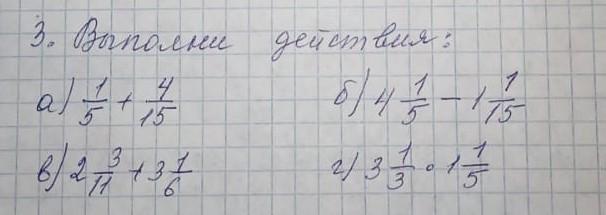 3. Выполни действия:
а) 1/5 + 4/15 б) 4 1/5 - 1 1/15
в) 2 3/11 + 3 1/6 г) 3 1/3 · 1 1/5